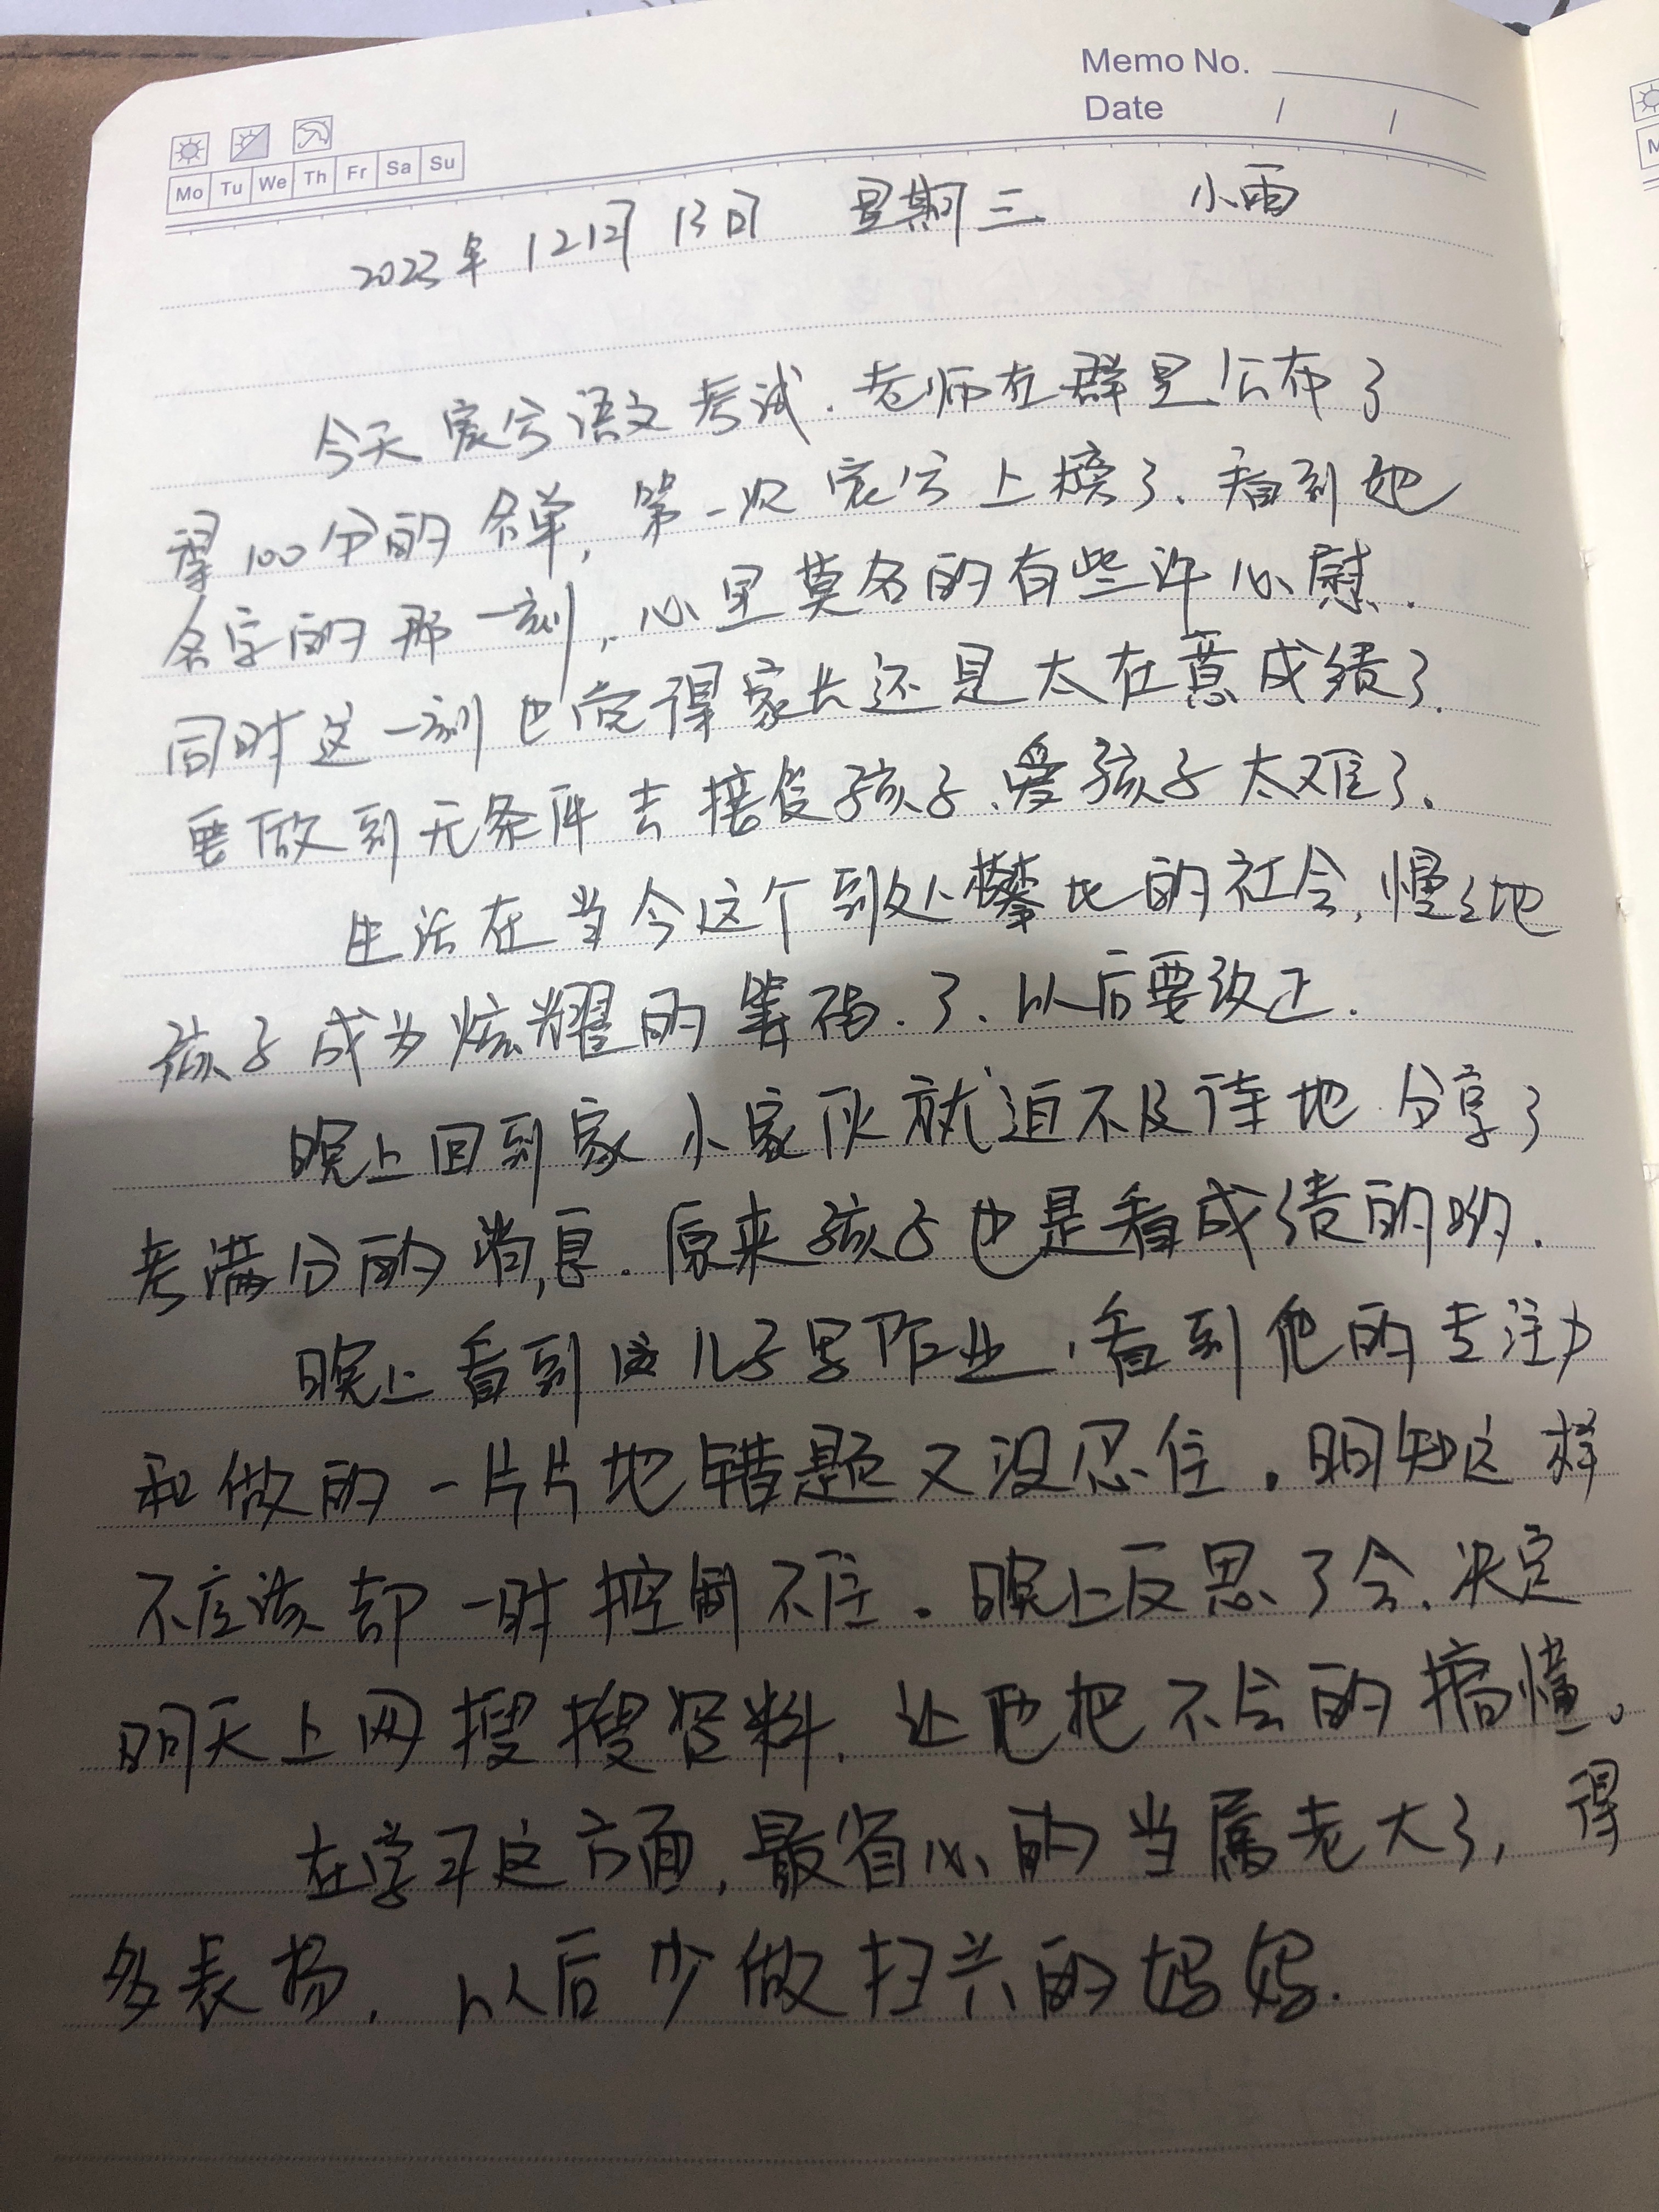 Memo No.
Date / /
Mo Tu We Th Fr Sa Su
2023年 12月 13日 星期三 小雨
今天宸兮语文考试.老师在群里公布了
得100分的名单,第一次宸兮上榜了.看到她
名字的那一刻,心里莫名的有些许心慰.
同时这一刻也觉得家长还是太在意成绩了.
要做到无条件去接受孩子、爱孩子太难了.
生活在当今这个到处攀比的社会,慢慢地
孩子成为炫耀的筹码.了、以后要改正.
晚上回到家小家伙就迫不及待地分享了
考满分的消息.原来孩子也是看成绩的哟.
晚上看到这儿子写作业,看到他的专注力
和做的一片片地错题又没忍住.明知这样
不应该却一时控制不住.晚上反思了会、决定
明天上网搜搜资料,让他把不会的搞懂。
在学习这方面,最省心的当属老大了,得
多表扬,以后少做扫兴的妈妈.